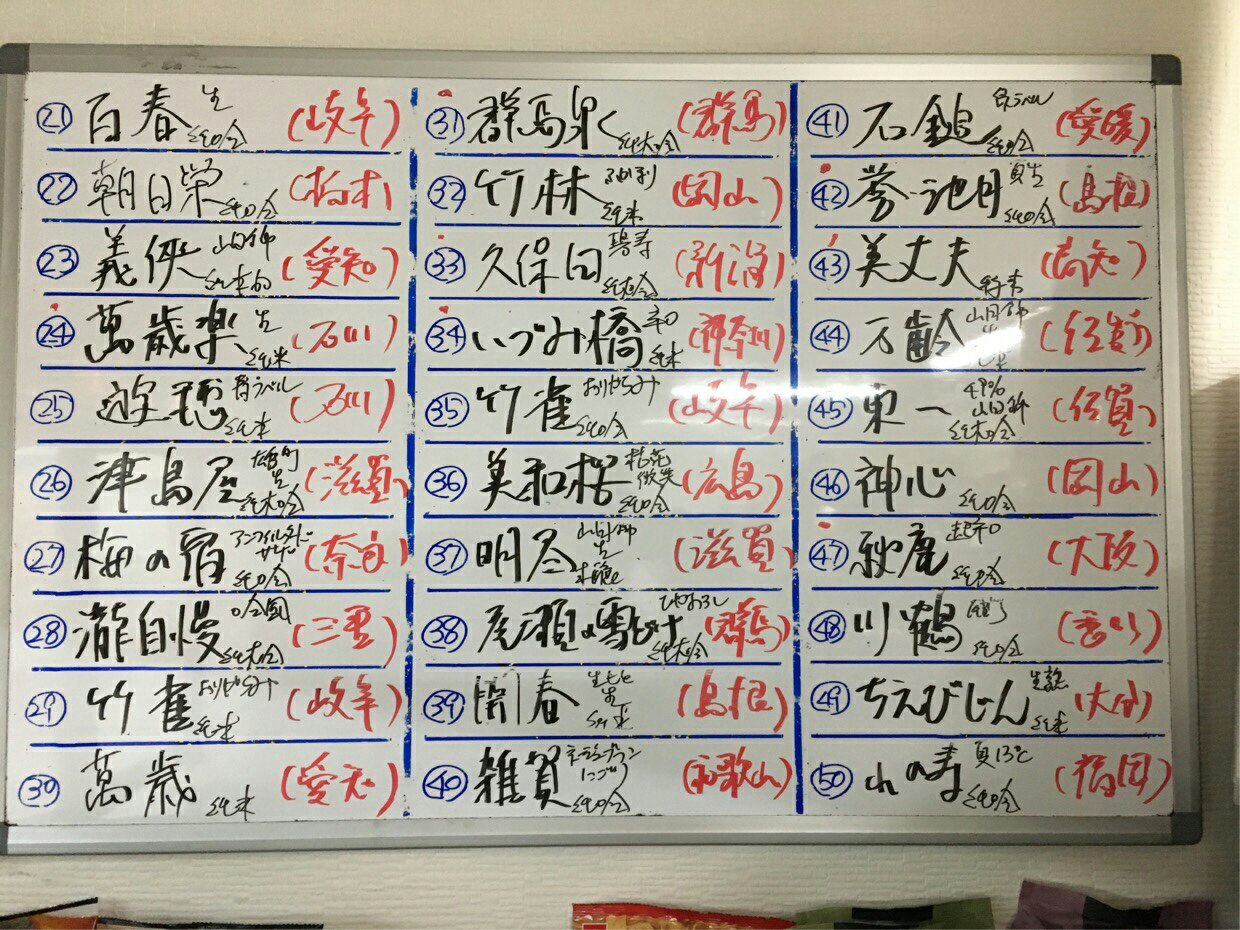 ㉑ 百春 生 純吟 (岐阜)
㉒ 朝日榮 純吟 (栃木)
㉓ 義侠 山田錦 (愛知)
㉔ 萬歳楽 生 純米 (石川)
㉕ 遊穂 純米 (石川)
㉖ 津島屋 雄町 生 純大吟 (滋賀)
㉗ 梅の宿 アンフィルタード サンド 純吟 (奈良)
㉘ 瀧自慢 純大吟 (三重)
㉙ 竹雀 おりがらみ 純米 (岐阜)
㉚ 萬歳 純米 (愛知)
㉛ 群馬泉 純大吟 (群馬)
㉜ 竹林 純米 (岡山)
㉝ 久保田 碧寿 純大吟 (新潟)
㉞ いづみ橋 辛口 純米 (神奈川)
㉟ 竹雀 おりがらみ 純吟 (岐阜)
㊱ 美和桜 純吟 (広島)
㊲ 明尽 山田錦 生 (滋賀)
㊳ 尾瀬の雪どけ ひやおろし 純大吟 (群馬)
㊴ 開春 純米 (島根)
㊵ 雑賀 にごり 純吟 (和歌山)
㊶ 石鎚 純吟 (愛媛)
㊷ 誉池月 純吟 (島根)
㊸ 美丈夫 (高知)
㊹ 万齢 山田錦 生 純米 (佐賀)
㊺ 東一 49% 山田錦 純大吟 (佐賀)
㊻ 神心 純吟 (岡山)
㊼ 秋鹿 超辛口 (大阪)
㊽ 川鶴 純吟 (香川)
㊾ ちえびじん 純米 (大分)
㊿ 山の寿 夏13℃ 純吟 (福岡)